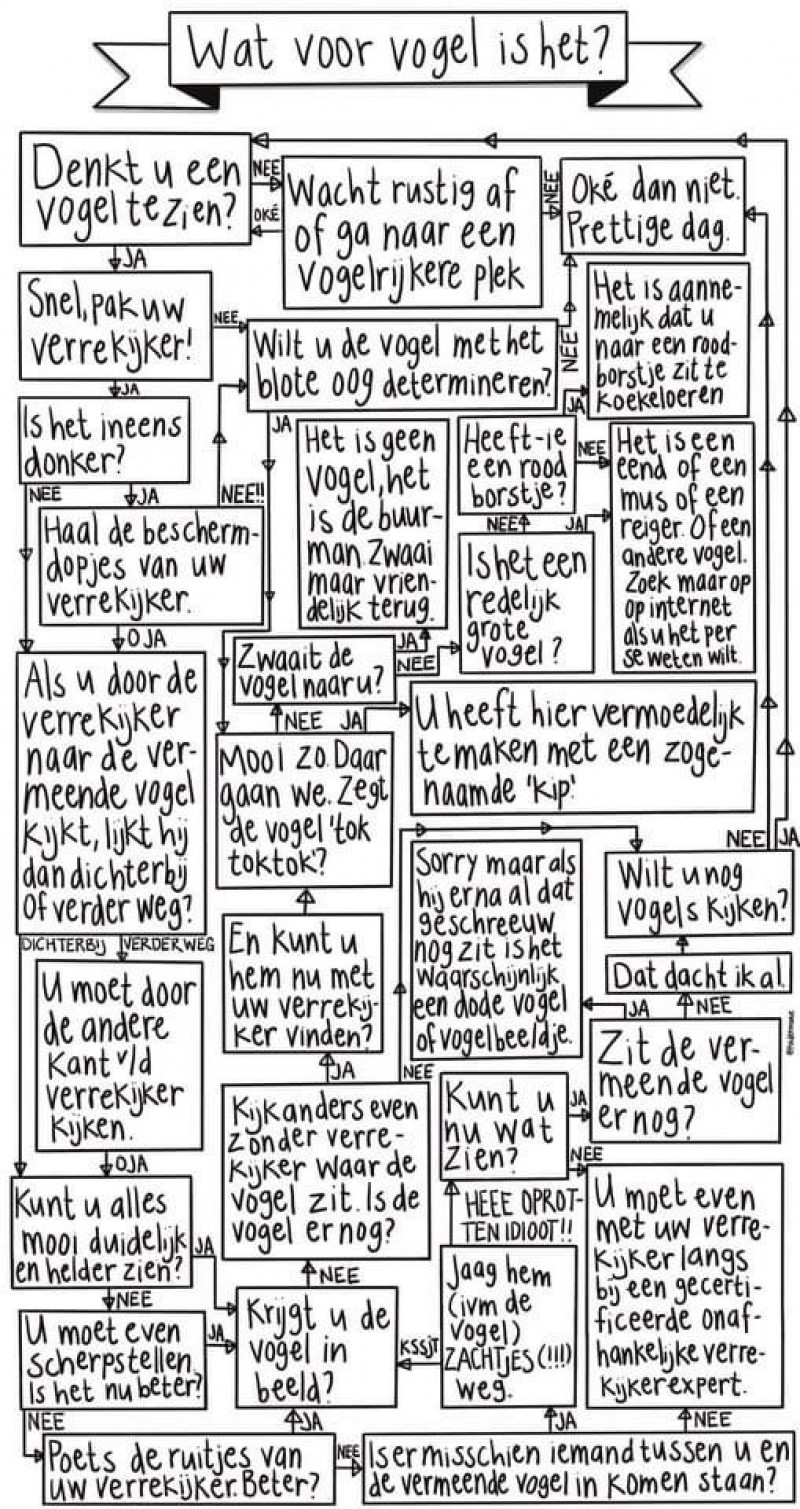 Wat voor vogel is het?
Denkt u een
vogel te zien?
NEE
OKÉ
Wacht rustig af
of ga naar een
vogelrijkere plek
NEE
Oké dan niet.
Prettige dag.
JA
Snel, pak uw
verrekijker!
NEE
Wilt u de vogel met het
blote oog determineren?
NEE
Het is aanne-
melijk dat u
naar een rood-
borstje zit te
koekeloeren
JA
Is het ineens
donker?
NEE
JA
Haal de bescherm-
dopjes van uw
verrekijker.
NEE!!
O JA
JA
Het is geen
vogel, het
is de buur-
man. Zwaai
maar vrien-
delijk terug.
Heeft-ie
een rood
borstje?
JA
NEE
Het is een
eend of een
mus of een
reiger. Of een
andere vogel.
Zoek maar op
op internet
als u het per
se weten wilt.
NEE
JA
Is het een
redelijk
grote
vogel?
Zwaait de
vogel naar u?
JA
NEE
Als u door de
verrekijker
naar de ver-
meende vogel
kijkt, lijkt hij
dan dichterbij
of verder weg?
NEE
JA
Mooi zo. Daar
gaan we. Zegt
de vogel 'tok
toktok'?
U heeft hier vermoedelijk
te maken met een zoge-
naamde 'kip'.
DICHTERBIJ
VERDER WEG
U moet door
de andere
kant v/d
verrekijker
kijken.
OJA
En kunt u
hem nu met
uw verrekij-
ker vinden?
JA
Sorry maar als
hij er na al dat
geschreeuw
nog zit is het
waarschijnlijk
een dode vogel
of vogelbeeldje.
NEE
JA
Wilt u nog
vogels kijken?
Dat dacht ik al.
JA
NEE
Zit de ver-
meende vogel
er nog?
Kijk anders even
zonder verre-
kijker waar de
vogel zit. Is de
vogel er nog?
NEE
Kunt u
nu wat
zien?
JA
NEE
Kunt u alles
mooi duidelijk
en helder zien?
JA
NEE
NEE
HEEE OPROT-
TEN IDIOOT!!
U moet even
met uw verre-
kijker langs
bij een gecerti-
ficeerde onaf-
hankelijke verre-
kijkerexpert.
U moet even
scherpstellen.
Is het nu beter?
JA
NEE
Krijgt u de
vogel in
beeld?
KSSJT
Jaag hem
(ivm de
vogel)
ZACHTJES (!!!)
weg.
JA
JA
NEE
Poets de ruitjes van
uw verrekijker. Beter?
NEE
Is er misschien iemand tussen u en
de vermeende vogel in komen staan?